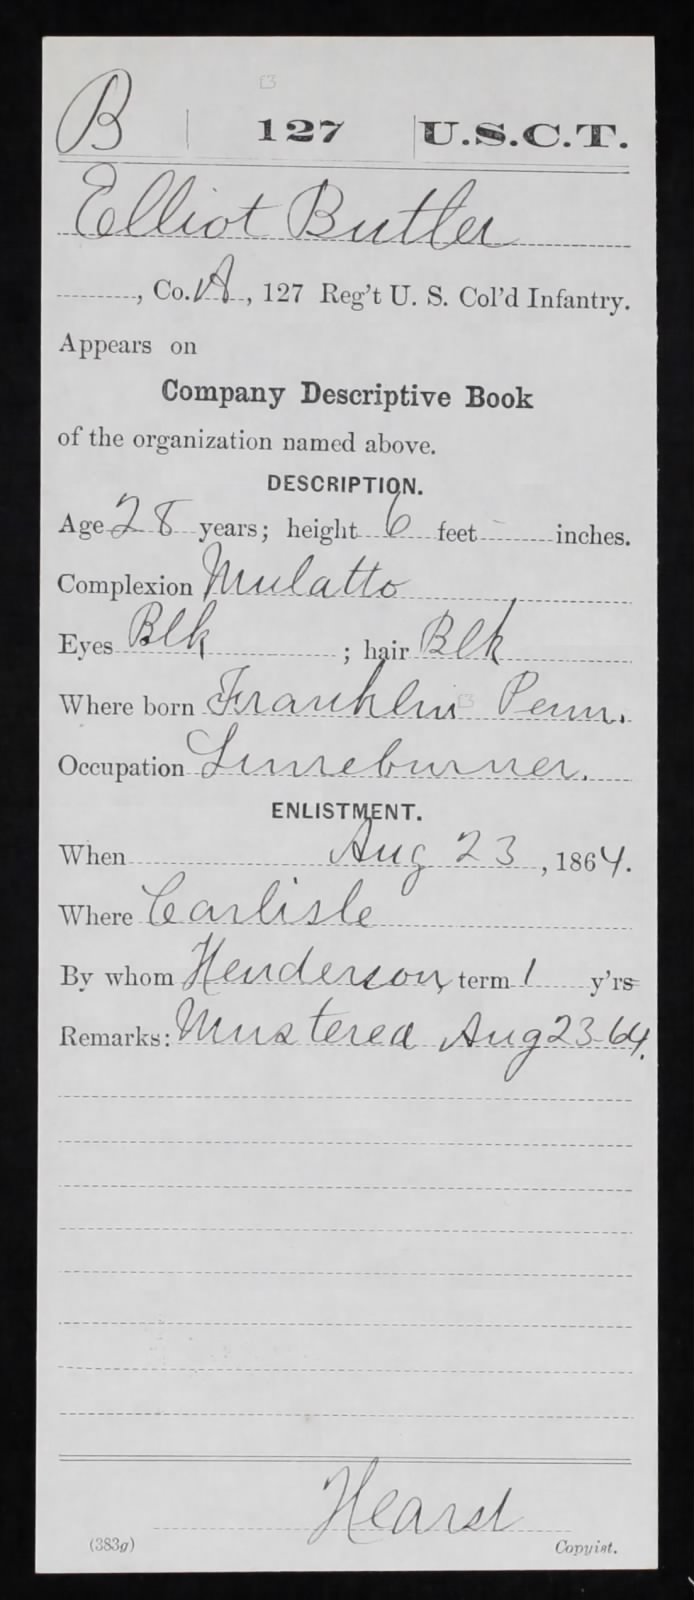 B | 127 | U.S.C.T.
Elliot Butler
, Co. A, 127 Reg't U. S. Col'd Infantry.
Appears on
Company Descriptive Book
of the organization named above.
DESCRIPTION.
Age 28 years; height 6 feet - inches.
Complexion Mulatto
Eyes Blk ; hair Blk
Where born Franklin Penn.
Occupation Limeburner.
ENLISTMENT.
When Aug 23, 1864.
Where Carlisle
By whom Henderson, term 1 y'rs
Remarks: Mustered Aug 23-64.
Hearst
(383g) Copyist.